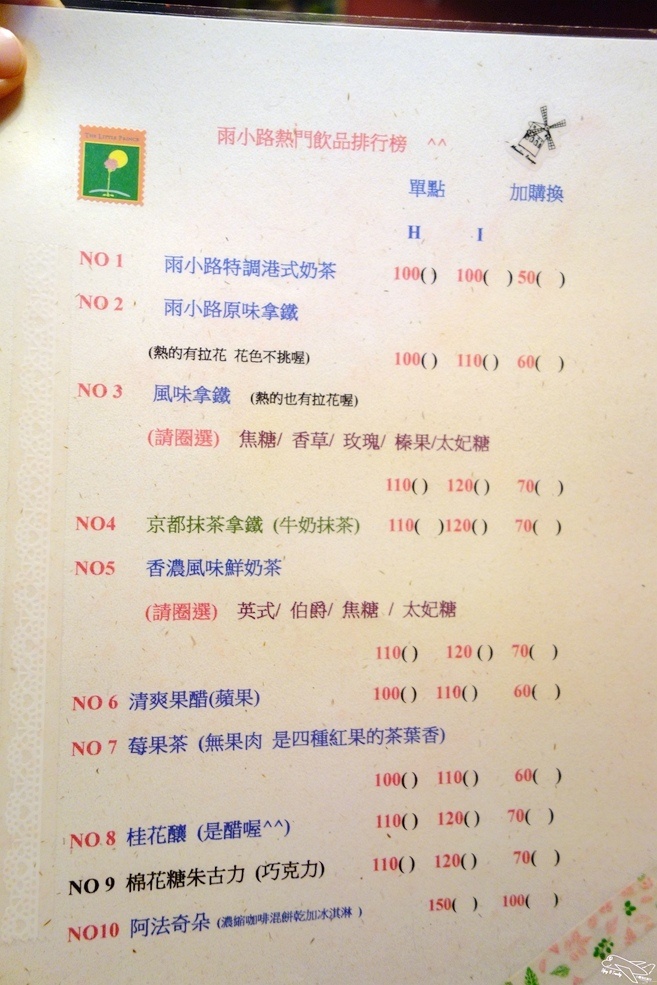 雨小路熱門飲品排行榜 ^^
單點 加購換
H I
NO 1 雨小路特調港式奶茶 100( ) 100( ) 50( )
NO 2 雨小路原味拿鐵
(熱的有拉花 花色不挑喔) 100( ) 110( ) 60( )
NO 3 風味拿鐵 (熱的也有拉花喔)
(請圈選) 焦糖/ 香草/ 玫瑰/ 榛果/太妃糖
110( ) 120( ) 70( )
NO4 京都抹茶拿鐵 (牛奶抹茶) 110( ) 120( ) 70( )
NO5 香濃風味鮮奶茶
(請圈選) 英式/ 伯爵/ 焦糖 / 太妃糖
110( ) 120 ( ) 70( )
NO 6 清爽果醋(蘋果) 100( ) 110( ) 60( )
NO 7 莓果茶 (無果肉 是四種紅果的茶葉香)
100( ) 110( ) 60( )
NO 8 桂花釀 (是醋喔^^) 110( ) 120( ) 70( )
NO 9 棉花糖朱古力 (巧克力) 110( ) 120( ) 70( )
NO10 阿法奇朵 (濃縮咖啡混餅乾加冰淇淋 ) 150( ) 100( )